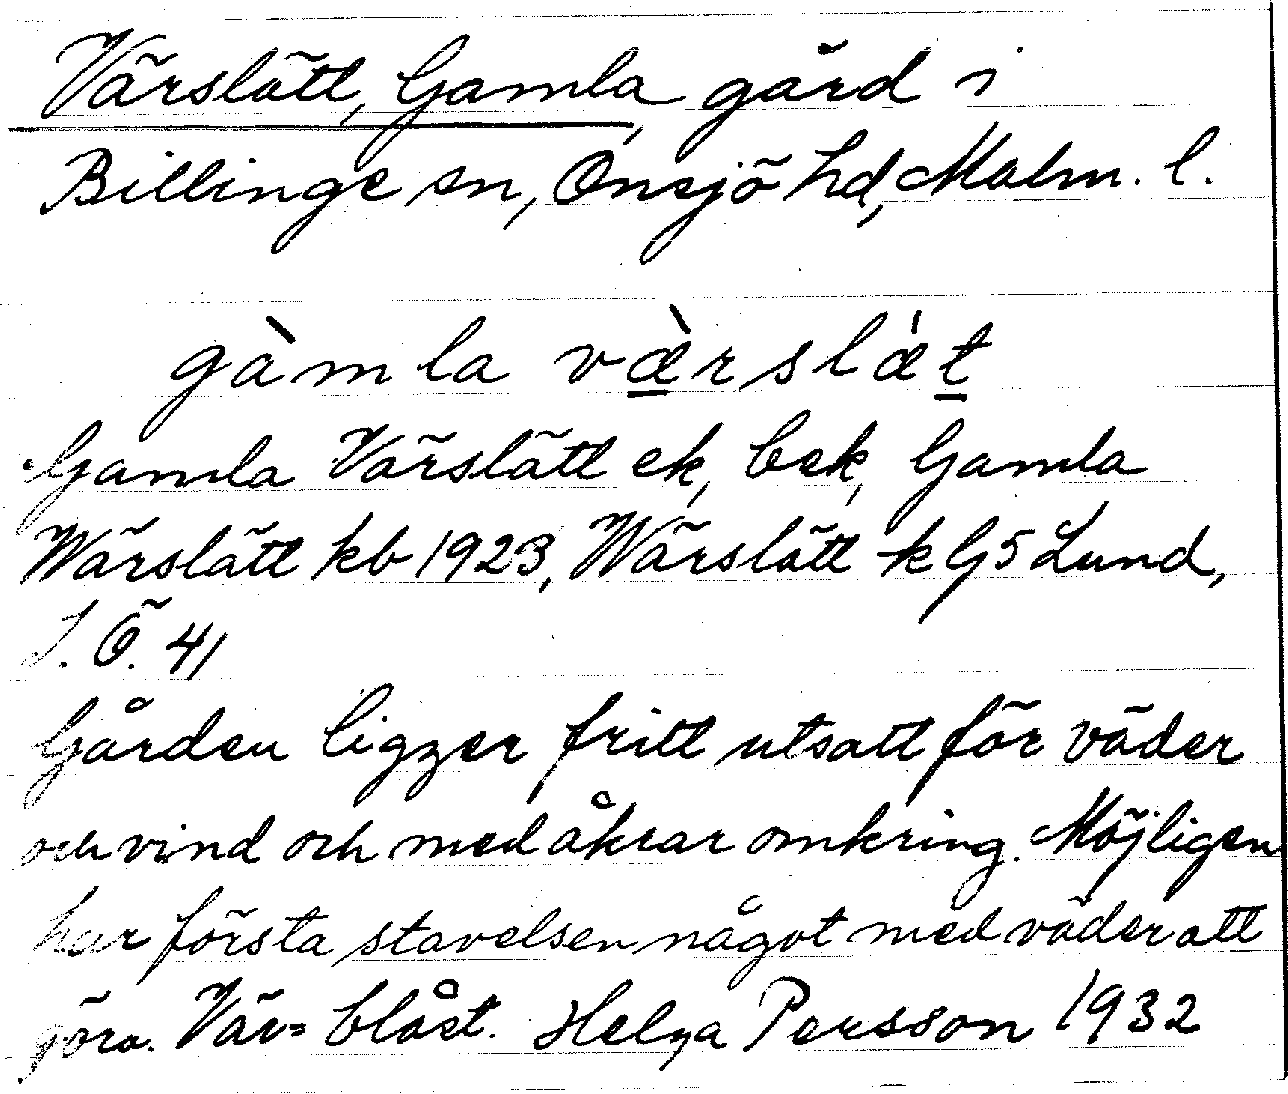 Värslätt, Gamla, gård i
Billinge sn, Onsjö hd, Malm. l.
gàmla væ̀rslæ̍t
Gamla Värslätt ek, bek, Gamla
Wärslätt kb 1923, Wärslätt k G5 Lund,
J. Ö. 41
Gården ligger fritt utsatt för väder
och vind och med åkrar omkring. Möjligen
har första stavelsen något med väder att
göra. Vär = blåst. Helga Persson 1932